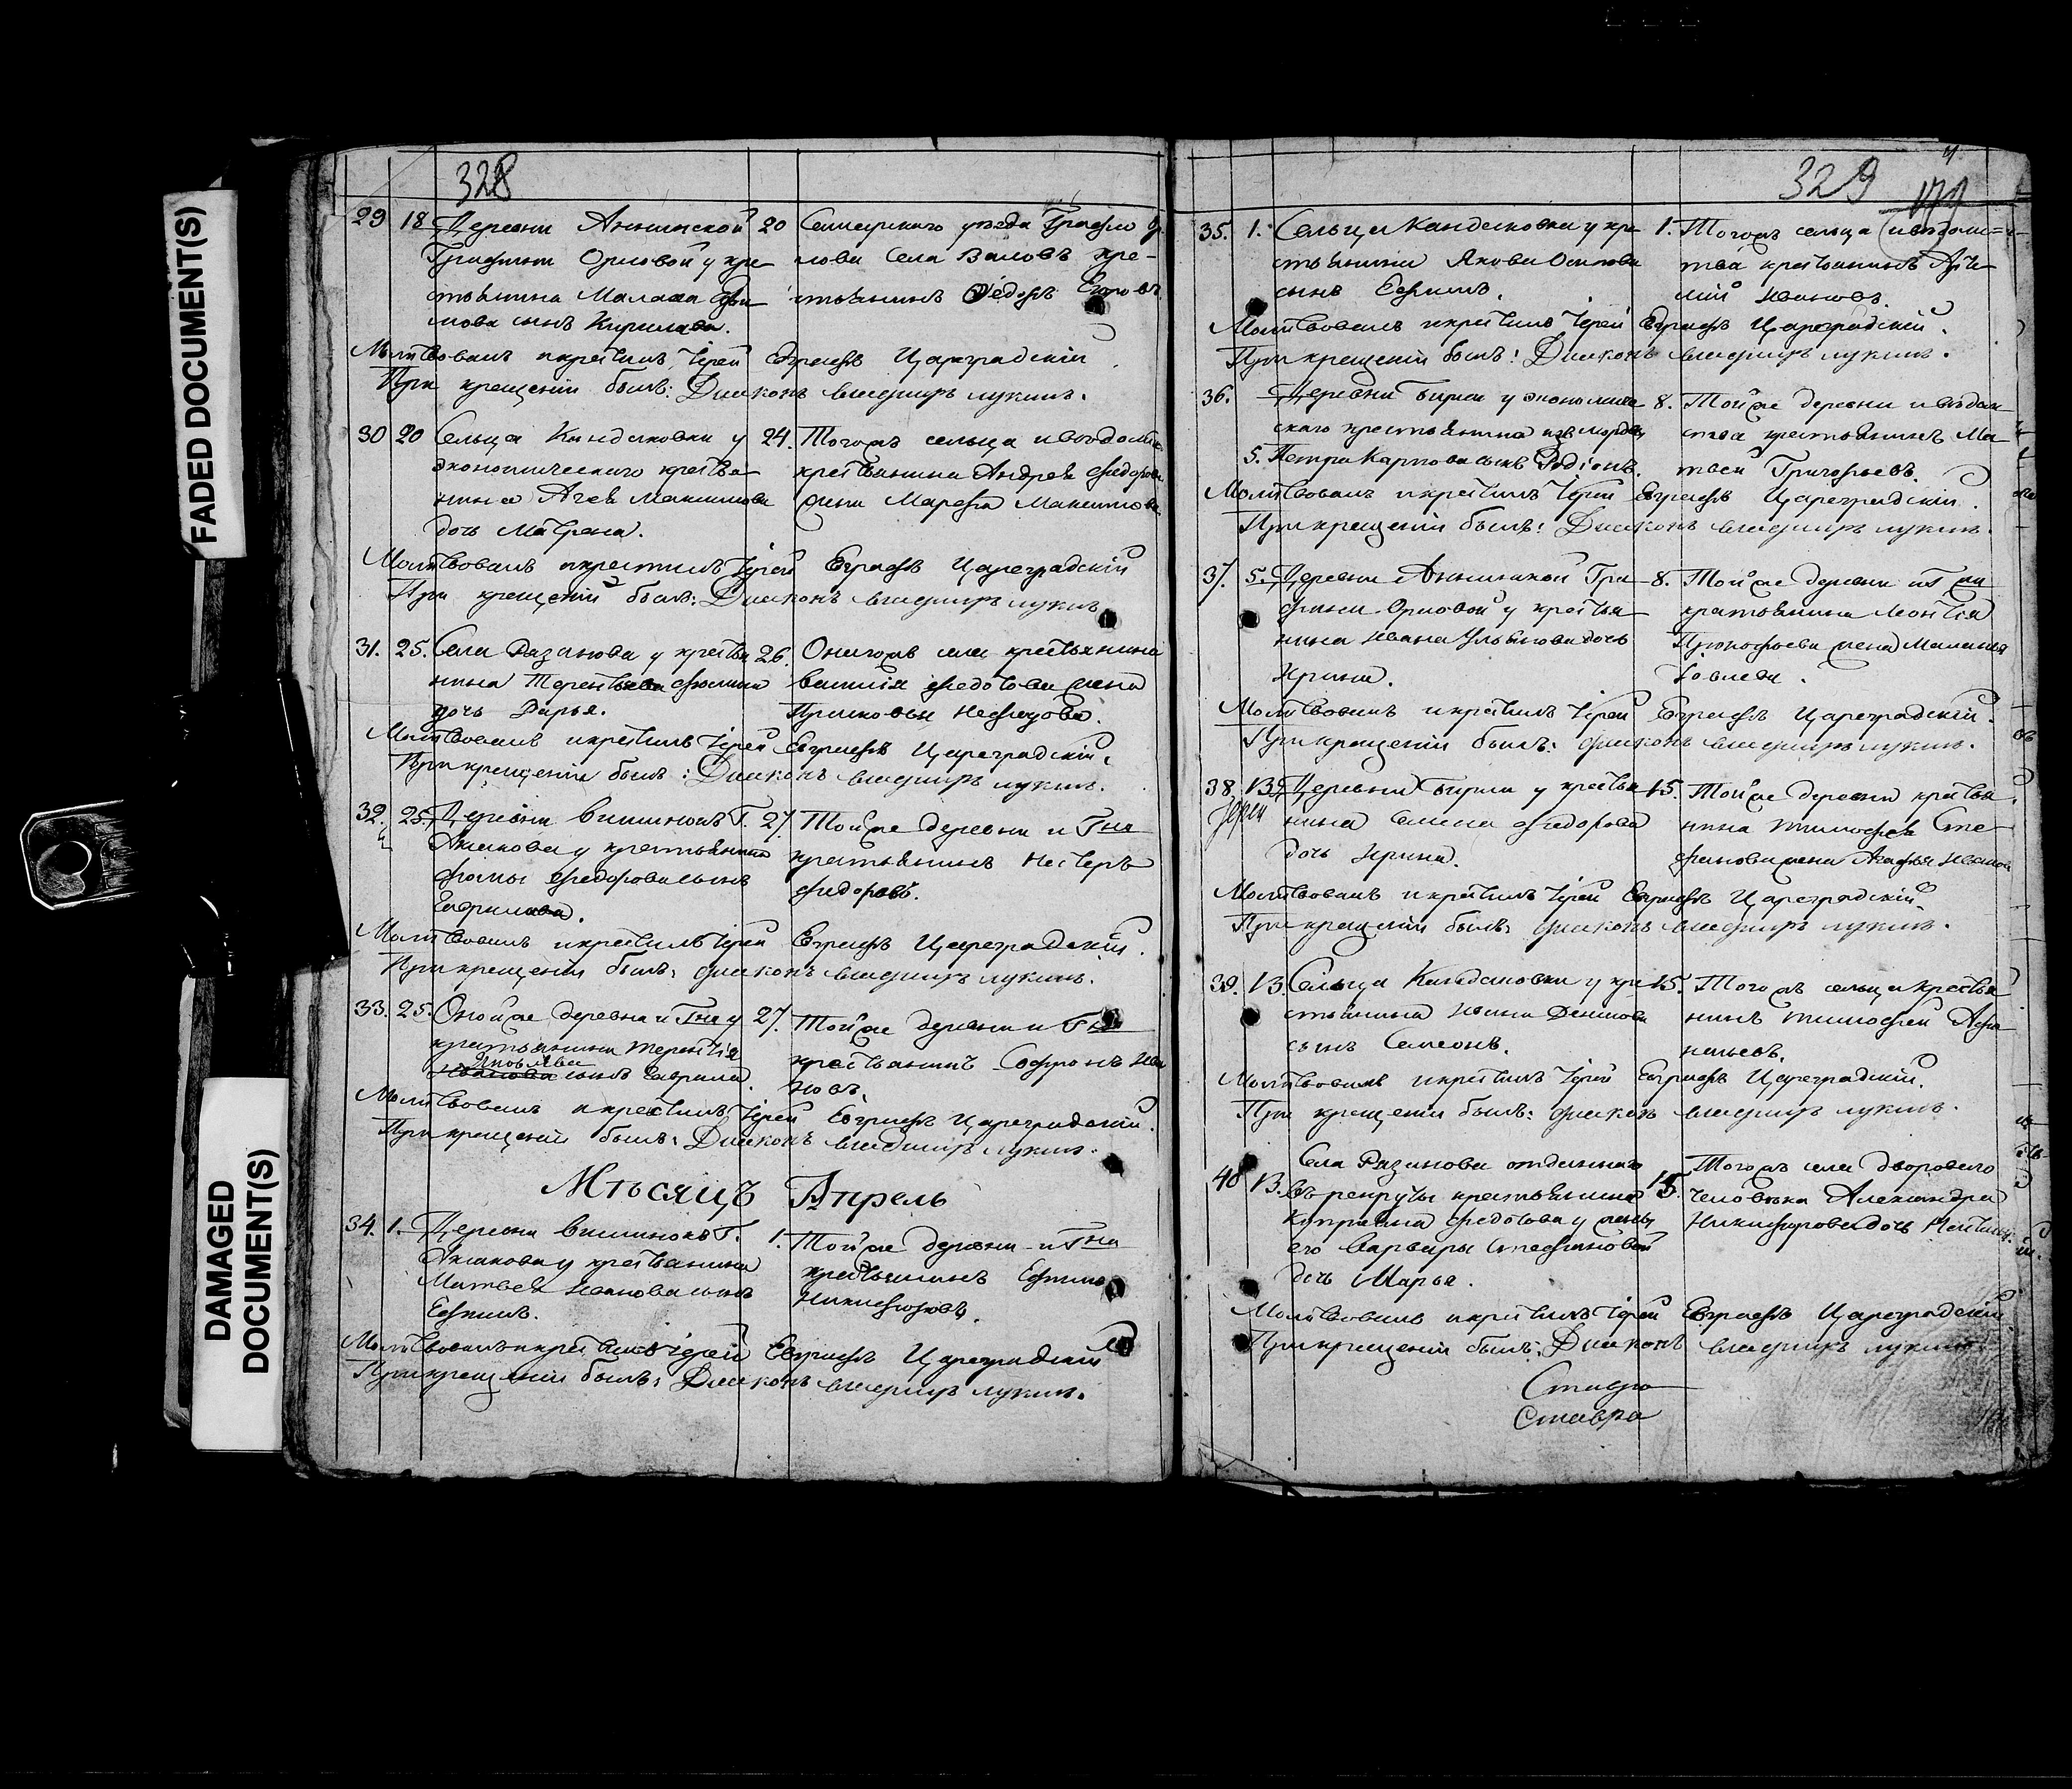 FADED DOCUMENT(S)
DAMAGED
DOCUMENT(S)
328
29 18 Деревни Аннинской
Графини Орловой у кре-
стьянина Малаха
мова сынъ Кирилла.
20 Симбирского уезда Графа Ор
лова Села Валовъ кре-
стьянинъ Ѳедоръ Егоровъ
Молитвовалъ и крестилъ Іерей Евграфъ Цареградскій
При крещеніи былъ: Диаконъ владимиръ лукинъ.
30 20 Сельца Кандаковки у
экономического крестья
нина Агея Максимова
дочь Матрена.
24. Тогожъ сельца
крестьянина Андрея Федорова
жена Марфа Максимова
Молитвовалъ и крестилъ Іерей Евграфъ Цареградскій
При крещеніи былъ: Диаконъ владимиръ лукинъ
31. 25. Села Разанова у крестья
нина Терентьева
дочь Дарья.
26. Оногожъ села крестьянина
василія федотова жена
Прасковья
Молитвовалъ и крестилъ Іерей Евграфъ Цареградскій.
При крещеніи былъ: Диаконъ владимиръ лукинъ.
32. 25. Деревни Вишнюкъ Г.
Акакова у крестьянина
фомы федорова сынъ
Гаврила.
27 Тойже деревни и Гна
крестьянинъ Нестеръ
федоровъ.
Молитвовалъ и крестилъ Іерей Евграфъ Цареградскій.
При крещеніи былъ: диаконъ владимиръ лукинъ.
33. 25. Онойже деревни и Гна у
крестьянина Терентія
Яковлева
сынъ Гаврила.
27. Тойже деревни и Гна
крестьянинъ Софронъ Ива
новъ.
Молитвовалъ и крестилъ Іерей Евграфъ Цареградскій.
При крещеніи былъ: Диаконъ владимиръ лукинъ.
Мѣсяцъ Апрель
34. 1. Деревни Вишнюкъ Г.
Акакова у крестьянина
Матвея Иванова сынъ
Ефимъ.
1. Тойже деревни и Гна
крестьянинъ Ефимъ
Никифоровъ.
Молитвовалъ и крестилъ іерей Евграфъ Цареградскій
При крещеніи былъ: Диаконъ владимиръ лукинъ.
329
35. 1. Сельца Кандаковки у кре
стьянина Якова Осипова
сынъ Ефимъ.
1. Тогожъ сельца и ведомс=
тва крестьянинъ Арте
мій Ивановъ.
Молитвовалъ и крестилъ Іерей Евграфъ Цареградскій.
При крещеніи былъ: Диаконъ владимиръ лукинъ.
36. Деревни Бирли у экономиче
скаго крестьянина изъ мордвы
5. Петра Карпова сынъ Родіонъ.
8. Тойже деревни и ведом
ства крестьянинъ Ма
твей Григорьевъ.
Молитвовалъ и крестилъ Іерей Евграфъ Цареградскій.
При крещеніи былъ: Диаконъ владимиръ лукинъ.
37. 5. Деревни Аннинской Гра-
фини Орловой у крестья
нина Ивана Ульянова дочь
Ирина.
8. Тойже деревни и Г жи
крестьянина Леонтія
Прокофьева жена Маланья
Молитвовалъ и крестилъ Іерей Евграфъ Цареградскій.
При крещеніи былъ: диаконъ владимиръ лукинъ.
38. 13 Деревни Бирли у крестья
нина Семена федорова
дочь Ирина.
15. Тойже деревни крестья
нина Тимофея Сте-
фанова жена Агафья Иванова
Молитвовалъ и крестилъ Іерей Евграфъ Цареградскій.
При крещеніи былъ: диаконъ владимиръ лукинъ.
39. 13. Сельца Кандаковки у кре
стьянина Ивана Денисова
сынъ Симеонъ.
15. Тогожъ сельца крестья
нинъ Тимофей Афа
насьевъ.
Молитвовалъ и крестилъ Іерей Евграфъ Цареградскій.
При крещеніи былъ: диаконъ владимиръ лукинъ.
40 13. Села Разанова отданнаго
въ рекруты крестьянина
Купріяна федотова у жены
его Варвары Стефановой
дочь Марья.
15. Тогожъ села двороваго
человѣка Александра
Никифорова дочь
Молитвовалъ и крестилъ Іерей Евграфъ Цареградскій.
При крещеніи былъ: Диаконъ владимиръ лукинъ.